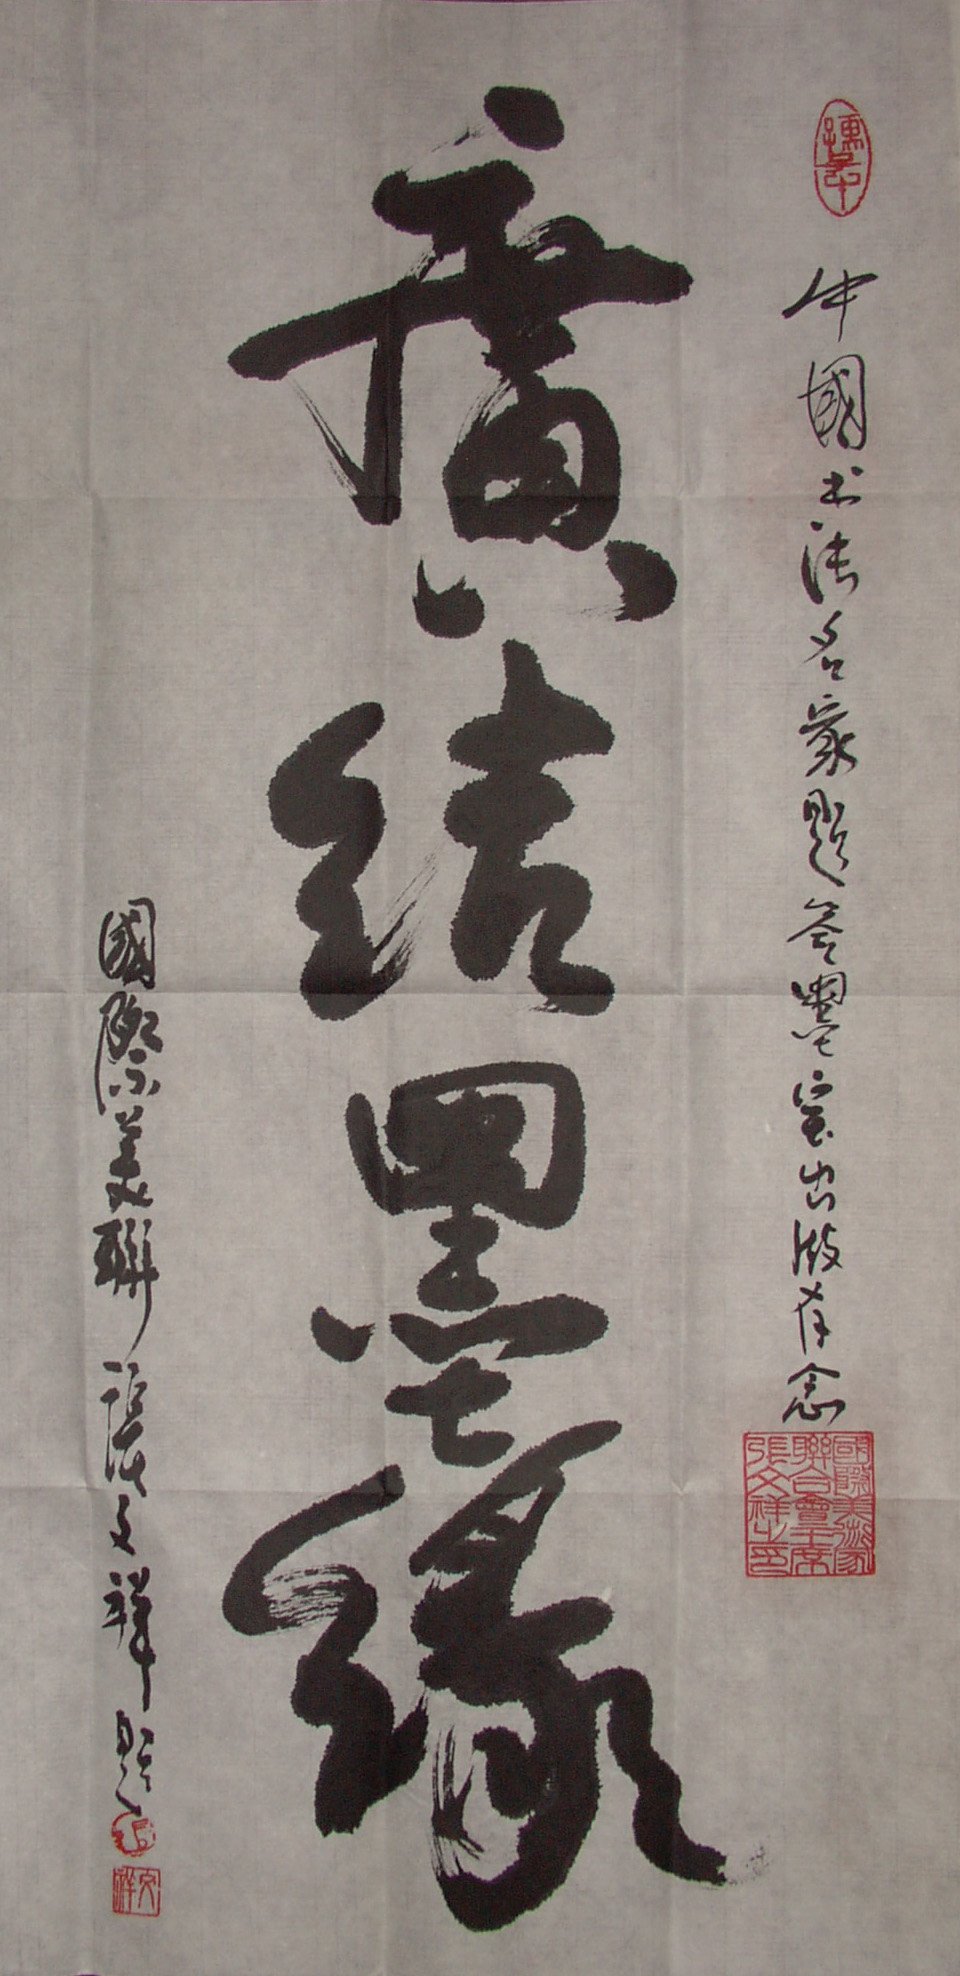 中國书法名家题签墨宝出版存念
廣结墨缘
國際美聯張文祥题
國際美術家
聯合會主席
張文祥之印
文祥